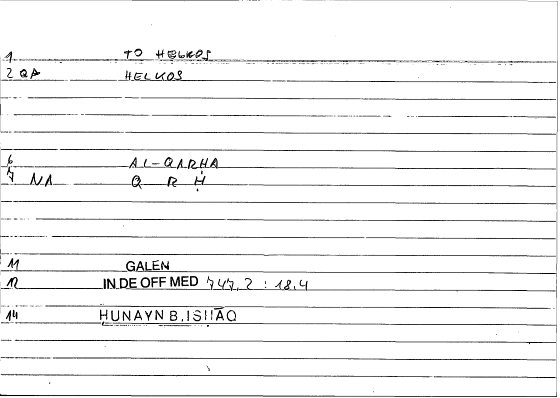 1 TO HELKOS
2 QA HELKOS
6 AL-QARḤA
7 NA Q R Ḥ
11 GALEN
12 IN DE OFF MED 747, 2 : 18,4
14 HUNAYN B. ISḤĀQ